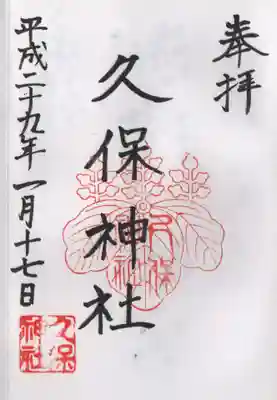 奉拝
久保神社
久保
神社
平成二十九年一月十七日
久保
神社